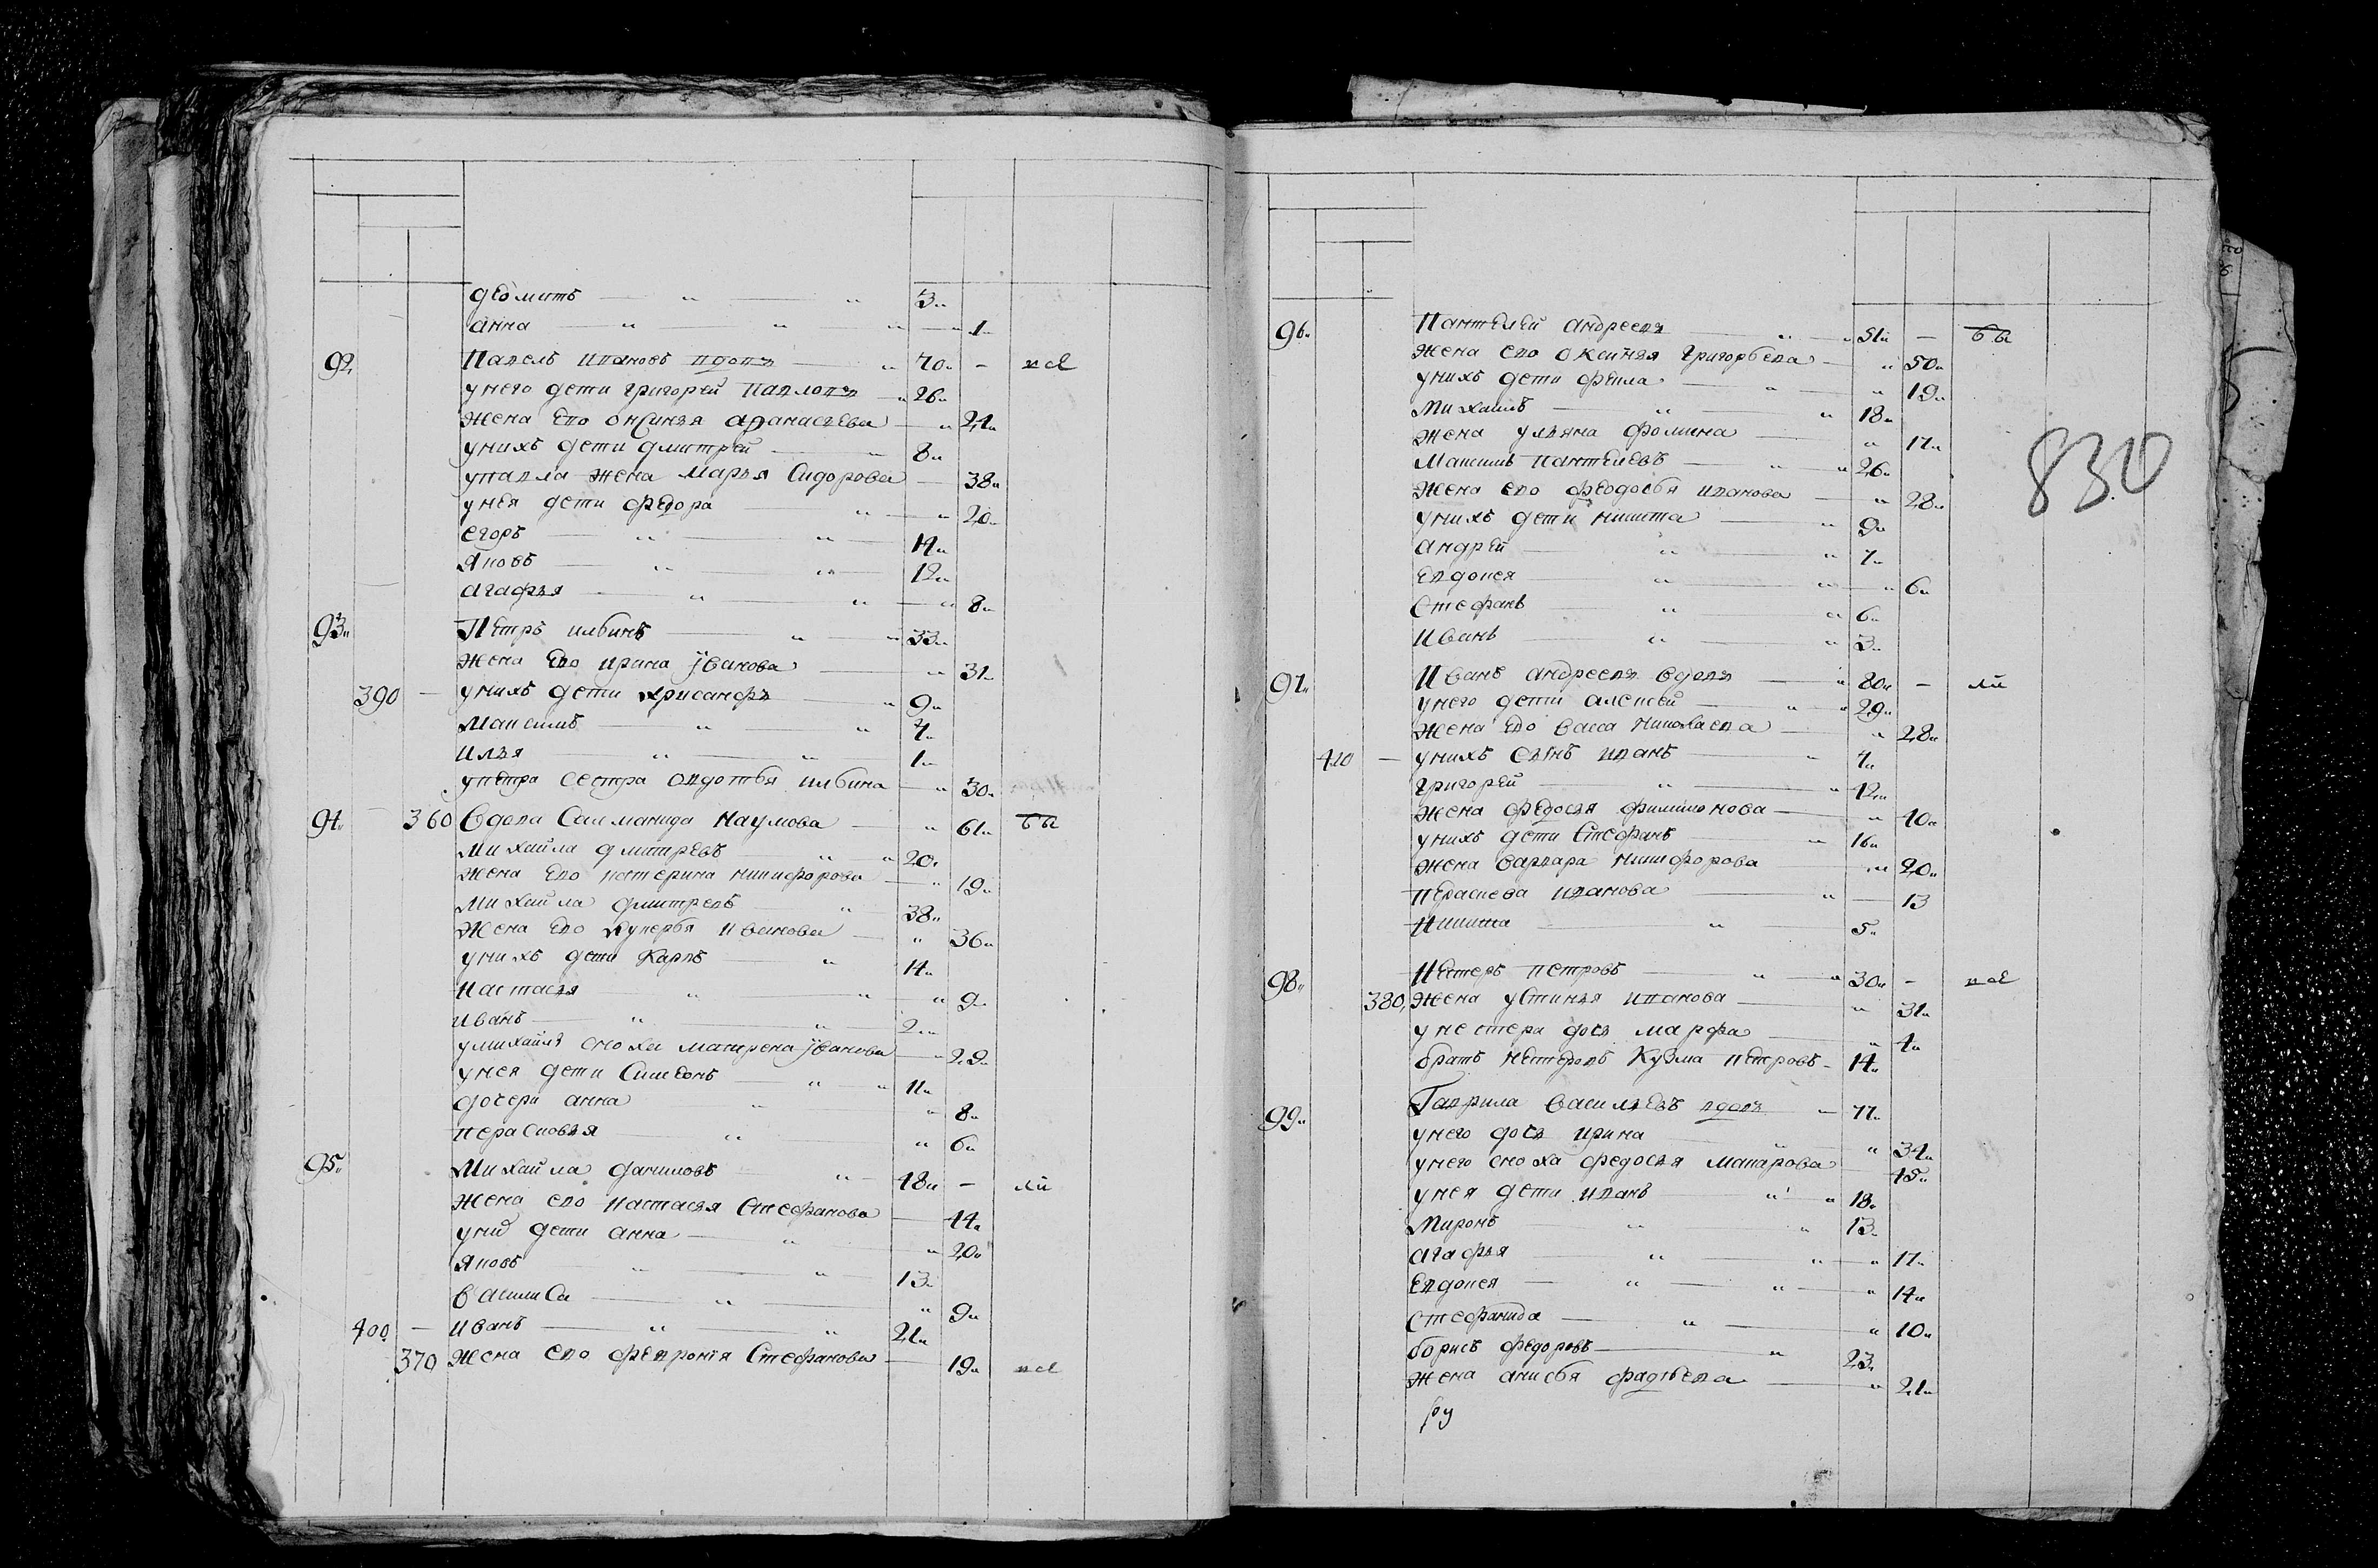 деомитъ 3
анна 1
92 Павелъ ивановъ вдовъ 70 –
унего дети григорей павловъ 26
жена его оксинья афанасьева 24
унихъ дети дмитрей 8
упавла жена марья Сидорова 38
унея дети федора 20
егоръ 14
яковъ 12
агафья 8
93 Петръ ильинъ 33
жена его ирина ивановa 31
390 – унихъ дети хрисанфъ 9
максимъ 7
илья 1
упетра сестра овдотья ильина 30
94 360 Вдова Саиманида Наумова 61
Михайла дмитревъ 20
жена его катерина никифорова 19
Михайла дмитревъ 38
Жена его лукерья Иванова 36
унихъ дети Карпъ 14
Настасья 9
иванъ 2
умихайлы сноха матрена ивановa 29
унея дети Симеонъ 11
дочери анна 8
перасковья 6
95 Михайла даниловъ 48 –
жена его настасья Стефанова 44
унихъ дети анна 20
яковъ 13
василиса 9
400 – иванъ 21
370 жена его феврония Стефанова 19
96 Пантелей андреевъ 51 –
жена его оксинья григорьева 50
унихъ дети фекла 19
михаилъ 18
жена ульяна фомина 17
Максимъ пантелевъ 26
жена его феодосья иванова 28
унихъ дети никита 9
андрей 7
евдокея 6
Стефанъ 6
иванъ 3
830
97 Иванъ андреевъ вдовъ 80 –
унего дети алексей 29
жена его васса николаева 28
410 – унихъ сынъ иванъ 7
григорей 42
жена федосья филимонова 40
унихъ дети Стефанъ 16
жена варвара никифорова 20
перасковa иванова 13
Никита 5
98 Нестеръ петровъ 30 –
380 жена устинья иванова 31
унестера дочь марфа 4
братъ нестеровъ Кузма петровъ 14
99 Гаврила васильевъ вдовъ 77
унего дочь ирина 34
унего сноха федосья макарова 45
унея дети иванъ 18
миронъ 13
агафья 17
евдокея 14
стефанида 10
борисъ федоровъ 23
жена анисья фадѣева 21
ру